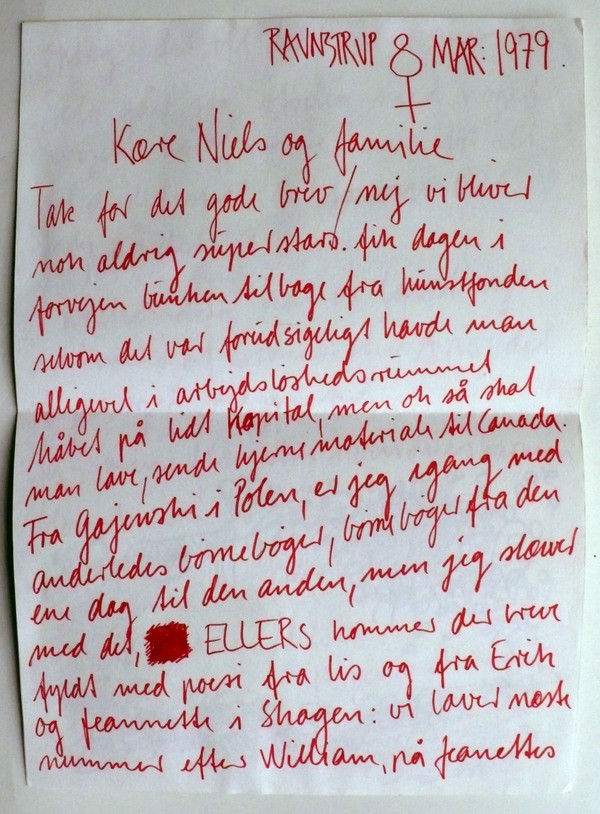 RAVNSTRUP 8 MAR: 1979.
Kære Niels og familie
Tak for det gode brev/nej vi bliver
nok aldrig superstars. fik dagen i
forvejen bunken tilbage fra kunstfonden
selvom det var forudsigeligt havde man
alligevel i arbejdsløshedsrummet
håbet på lidt kapital, men ok så skal
man lave, sende hjernemateriale til Canada.
Fra Gajewski i Polen, er jeg igang med
anderledes børnebøger, børnebøger fra den
ene dag til den anden, men jeg slæver
med det, ELLERS kommer der breve
fyldt med poesi fra Lis og fra Erik
og Jeannette i Skagen: vi laver næste
nummer efter William, på Jeanettes